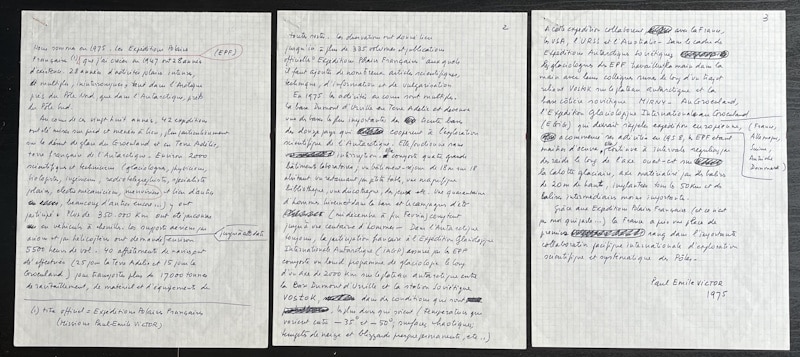 Nous sommes en 1975. Les Expéditions Polaires
Françaises (1), que j'ai créées en 1947 ont 28 années
(EPF)
d'existence. 28 années d'activités polaires intenses,
et multiples, ininterrompues, tant dans l'Arctique
près du Pôle Nord, que dans l'Antarctique, près
du Pôle Sud.
Au cours de ces vingt huit années, 42 expéditions
ont été mises sur pied et menées à bien, plus particulièrement
sur le dôme de glace du Groenland et en Terre Adélie,
terre française de l'Antarctique. Environ 2000
scientifiques et techniciens (glaciologues, physiciens,
biologistes, ingénieurs, radiotélégraphistes, spécialistes
polaires, électromécaniciens, et bien d'autres
beaucoup d'autres encore...) y ont
participé. Plus de 350.000 Km ont été parcourus
en véhicules à chenilles. Les supports aériens par
avions et par hélicoptères ont demandé environ
jusqu'à cette date
5500 heures de vol. 40 affrètements de navires ont
été effectués (25 pour la Terre Adélie et 15 pour le
Groenland) pour transporter plus de 17000 tonnes
de ravitaillement, de matériel et d'équipements de
(1) titre officiel = Expéditions Polaires Françaises
(Missions Paul-Emile VICTOR)
2
toutes sortes. Les observations ont donné lieu
jusqu'ici à plus de 335 volumes et publications
officielles "Expéditions Polaires Françaises" auxquels
il faut ajouter de nombreux articles scientifiques,
techniques, d'information et de vulgarisation
En 1975 les activités se sont multipliées.
La base Dumont d'Urville en Terre Adélie est devenue
une des bases les plus importantes de la trentaine de bases
des douze pays qui coopèrent à l'exploration
scientifique de l'Antarctique. Elle fonctionne sans
interruption. Elle comporte quatre grands
bâtiments laboratoires, un bâtiment-séjour de 18 m sur 18
abritant un restaurant, une magnifique
bibliothèque, une discothèque, des jeux etc. Une quarantaine
d'hommes hivernent dans la base et les campagnes d'été
(de décembre à fin février) comptent
jusqu'à une centaine d'hommes. Dans l'Antarctique
toujours, la participation française à l'Expédition Glaciologique
Internationale Antarctique (IAGP) assurée par les EPF
comporte un lourd programme de glaciologie le long
d'un axe de 2000 Km sur le plateau antarctique entre
la base Dumont d'Urville et la station soviétique
VOSTOK, dans des conditions qui sont
les plus dures qui soient (températures qui
varient entre -35° et -50°; surfaces chaotiques;
tempêtes de neige et blizzards presque permanents, etc..)
3
A cette expédition collaborent avec la France,
les USA, l'URSS et l'Australie. Dans le cadre des
Expéditions Antarctiques Soviétiques
les glaciologues des EPF travaillent la main dans la
main avec leurs collègues russes le long du trajet
reliant VOSTOK sur le plateau antarctique et la
base côtière soviétique MIRNY. Au Groenland,
l'Expédition Glaciologique Internationale au Groenland
(EGIG) qui devait rassembler expéditions européennes,
(France,
Allemagne,
Suisse,
Autriche
Danemark)
a commencé ses activités en 1958, les EPF étant
maître d'oeuvre. à intervalles réguliers,
des raids le long de l'axe ouest-est sur
la calotte glaciaire, axe matérialisé par des balises
de 20 m de haut, implantées tous les 50 Km et de
balises intermédiaires moins importantes.
Grâce aux Expéditions Polaires Françaises (et ce n'est
pas moi qui parle...) la France a pris une place de
premier rang dans l'importante
collaboration pacifique internationale d'exploration
scientifique et systématique des Pôles.
Paul Emile VICTOR
1975